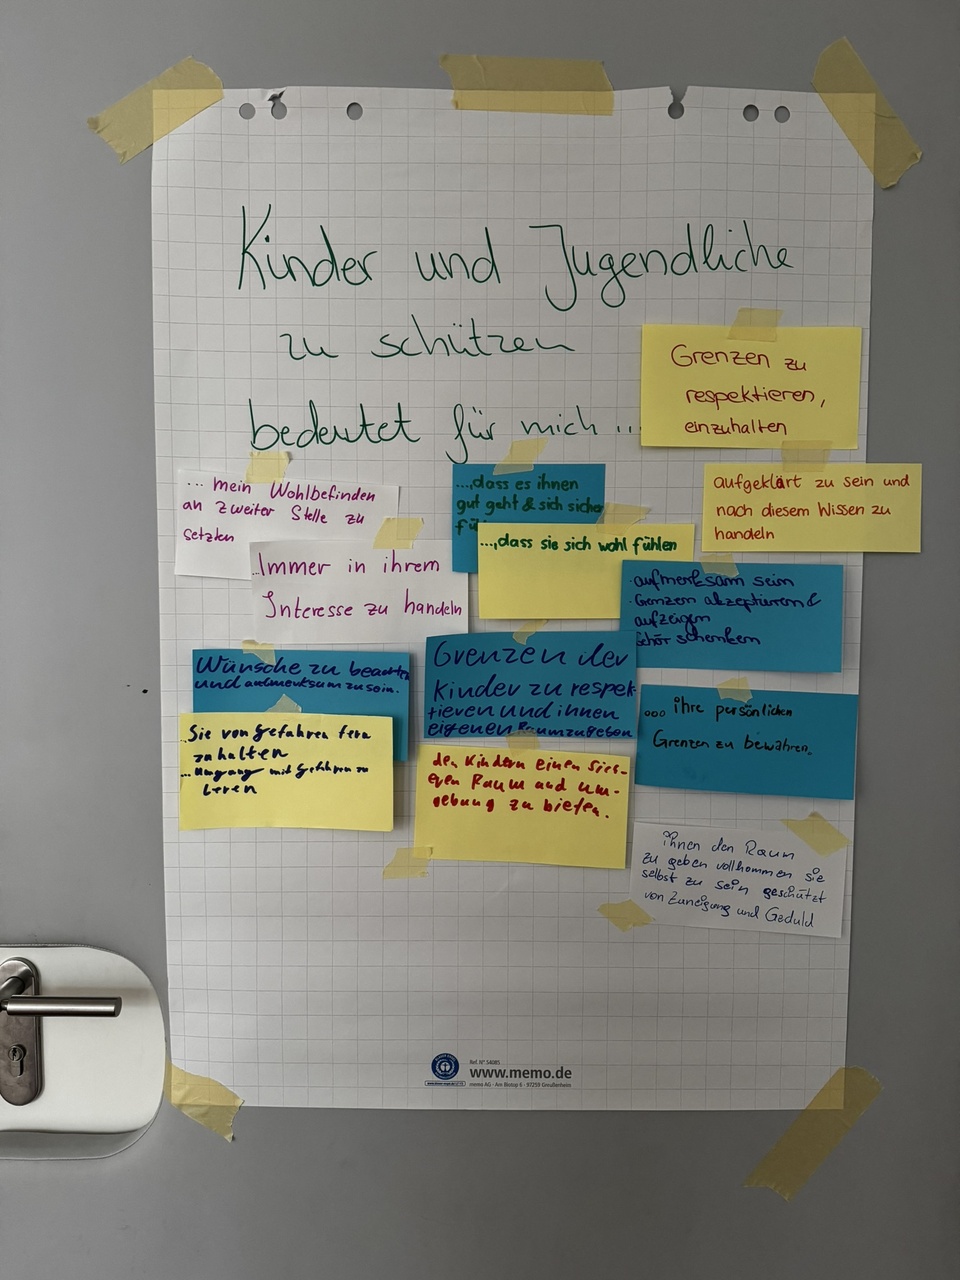 Kinder und Jugendliche
zu schützen
bedeutet für mich ...
Grenzen zu
respektieren,
einzuhalten
... mein Wohlbefinden
an zweiter Stelle zu
setzten
...Immer in ihrem
Interesse zu handeln
...,dass es ihnen
gut geht & sich sicher
fü
...,dass sie sich wohl fühlen
aufgeklärt zu sein und
nach diesem Wissen zu
handeln
·aufmerksam sein
·Grenzen akzeptieren &
aufzeigen
Gehör schenken
Wünsche zu beachten
und aufmerksam zu sein.
Grenzen der
Kinder zu respek-
tieren und ihnen
eigenen Raum zu geben
... ihre persönlichen
Grenzen zu bewahren.
...Sie von Gefahren fern
zu halten
... Umgang mit Gefahren zu
leren
den Kindern einen Sich-
eren Raum und um-
gebung zu bieten.
ihnen den Raum
zu geben vollkommen sie
selbst zu sein geschützt
von Zuneigung und Geduld
Ref. N° 54085
www.memo.de
memo AG · Am Biotop 6 · 97259 Greußenheim